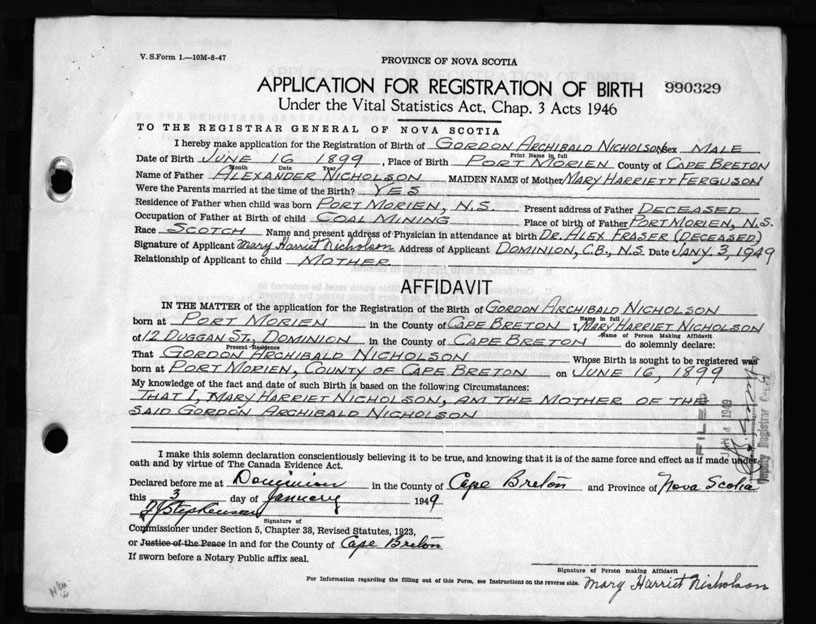 V. S. Form 1.—10M-8-47
PROVINCE OF NOVA SCOTIA
APPLICATION FOR REGISTRATION OF BIRTH 990329
Under the Vital Statistics Act, Chap. 3 Acts 1946
TO THE REGISTRAR GENERAL OF NOVA SCOTIA
I hereby make application for the Registration of Birth of GORDON ARCHIBALD NICHOLSON Sex MALE
Print Name in full
Date of Birth JUNE 16 1899, Place of Birth PORT MORIEN County of CAPE BRETON
Month Day Year
Name of Father ALEXANDER NICHOLSON MAIDEN NAME of Mother MARY HARRIETT FERGUSON
Were the Parents married at the time of the Birth? YES
Residence of Father when child was born PORT MORIEN, N.S. Present address of Father DECEASED
Occupation of Father at Birth of child COAL MINING Place of birth of Father PORT MORIEN, N.S.
Race SCOTCH Name and present address of Physician in attendance at birth DR. ALEX FRASER (DECEASED)
Signature of Applicant Mary Harriet Nicholson Address of Applicant DOMINION, C.B., N.S. Date JANY. 3, 1949
Relationship of Applicant to child MOTHER
AFFIDAVIT
IN THE MATTER of the application for the Registration of the Birth of GORDON ARCHIBALD NICHOLSON
Name in full
born at PORT MORIEN in the County of CAPE BRETON I, MARY HARRIET NICHOLSON
Name of Person Making Affidavit
of 12 DUGGAN ST., DOMINION in the County of CAPE BRETON do solemnly declare:
Present Residence
That GORDON ARCHIBALD NICHOLSON Whose Birth is sought to be registered was
born at PORT MORIEN, COUNTY OF CAPE BRETON on JUNE 16, 1899
My knowledge of the fact and date of such Birth is based on the following Circumstances:
THAT I, MARY HARRIET NICHOLSON, AM THE MOTHER OF THE
SAID GORDON ARCHIBALD NICHOLSON
FILED
JAN 4 1949
Deputy Registrar
I make this solemn declaration conscientiously believing it to be true, and knowing that it is of the same force and effect as if made under
oath and by virtue of The Canada Evidence Act.
Declared before me at Dominion in the County of Cape Breton and Province of Nova Scotia
this 3 day of January 1949
Stephenson
Signature of
Commissioner under Section 5, Chapter 38, Revised Statutes, 1923,
or Justice of the Peace in and for the County of Cape Breton
If sworn before a Notary Public affix seal.
Signature of Person making Affidavit
For Information regarding the filling out of this Form, see Instructions on the reverse side. Mary Harriet Nicholson